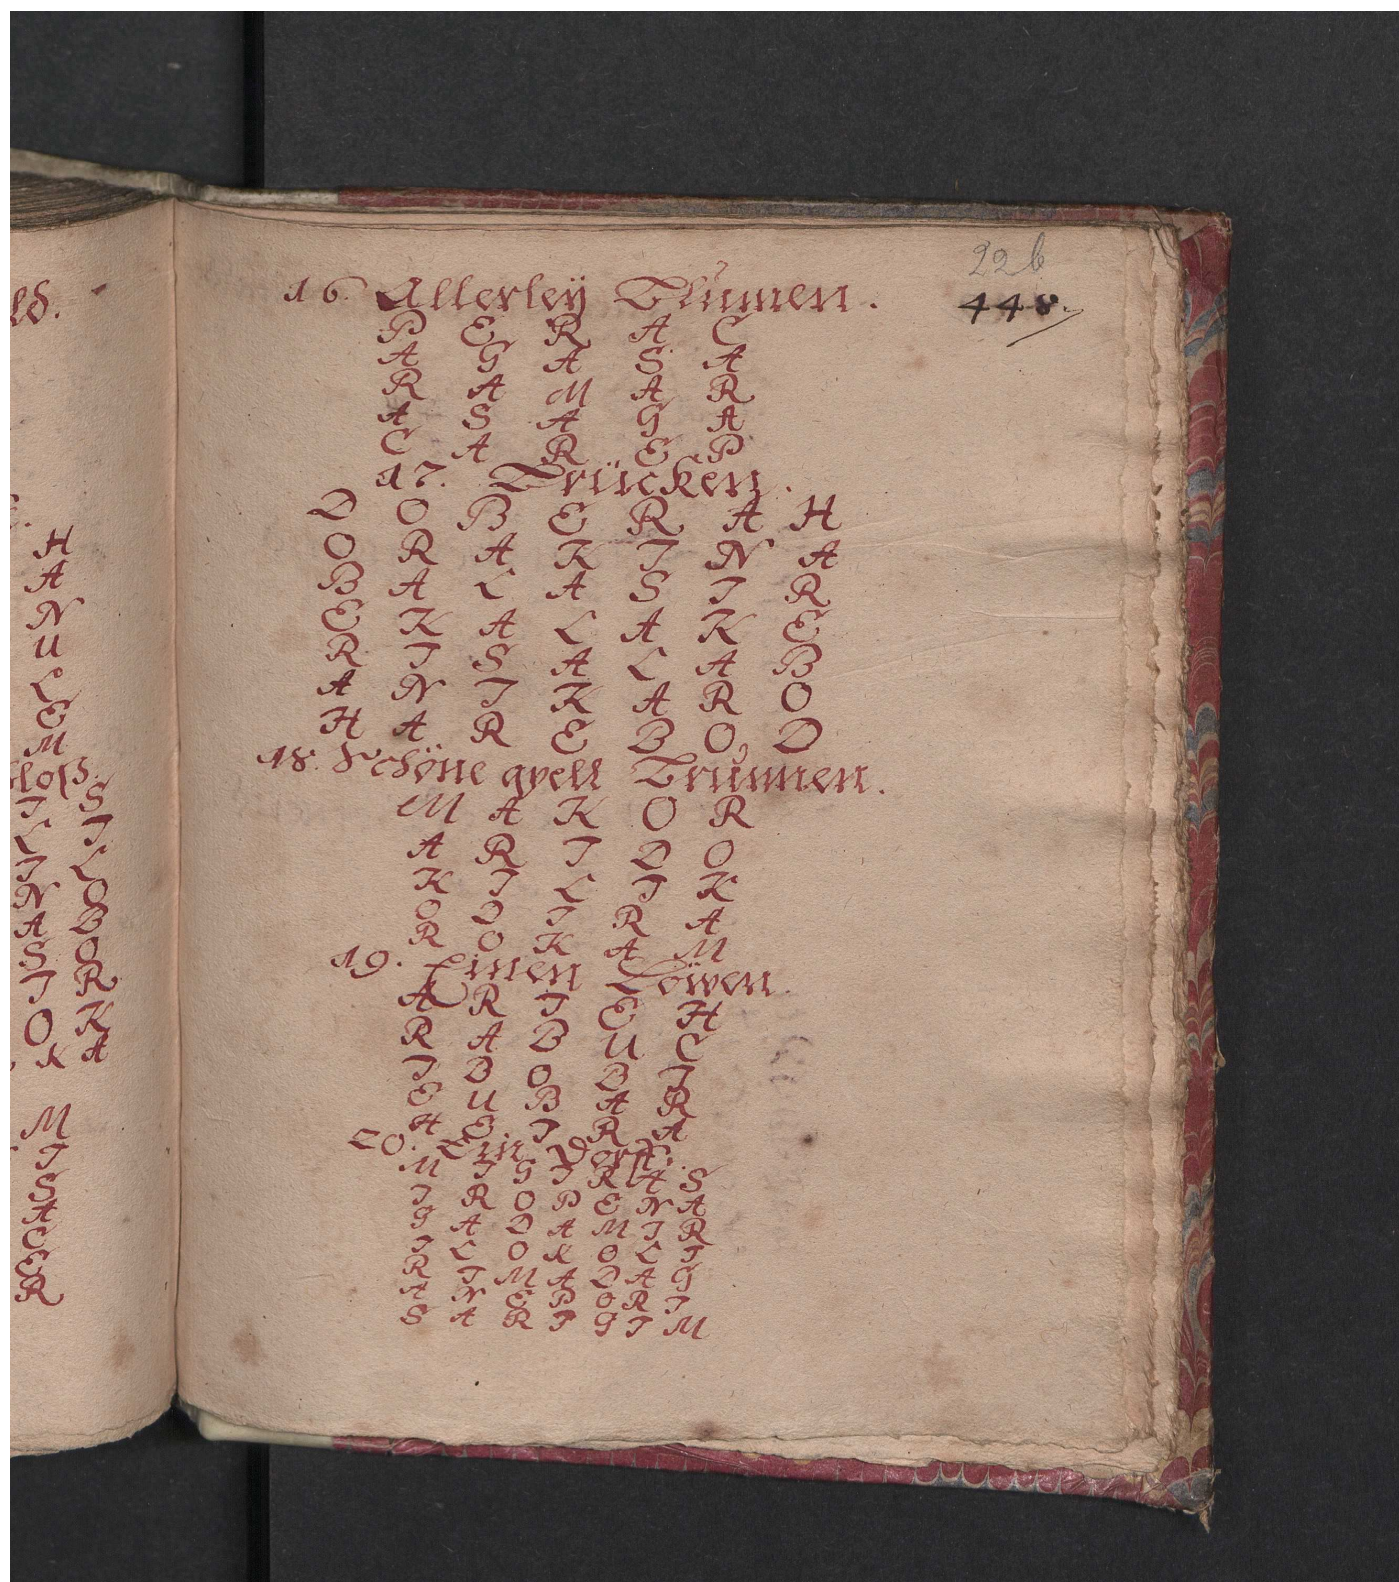 22b
448.
16. Allerley Blumen.
P E R A C
A G A S A
R A M A R
A S A G A
C A R E P
17. Brücken.
D O B E R A H
O R A K I N A
B A L A S I R
E K A L A K E
R I S A L A B
A N I K A R O
H A R E B O D
18. Schöne quell Brunnen.
M A K O R
A R I D O
K I L I K
O D I R A
R O K A M
19. Einen Löwen.
A R I E H
R A B U E
I B O B I
E U B A R
H E I R A
20. Ein Dorff.
M I G I R A S
I R O P E N A
G A D A M I R
I L O K O L I
R I M A D A G
A N E P O R I
S A R I G I M
H
A
N
U
L
E
M
I S
L I
I L
N O
A B
S O
I R
O K
K A
M
I
S
A
C
E
R